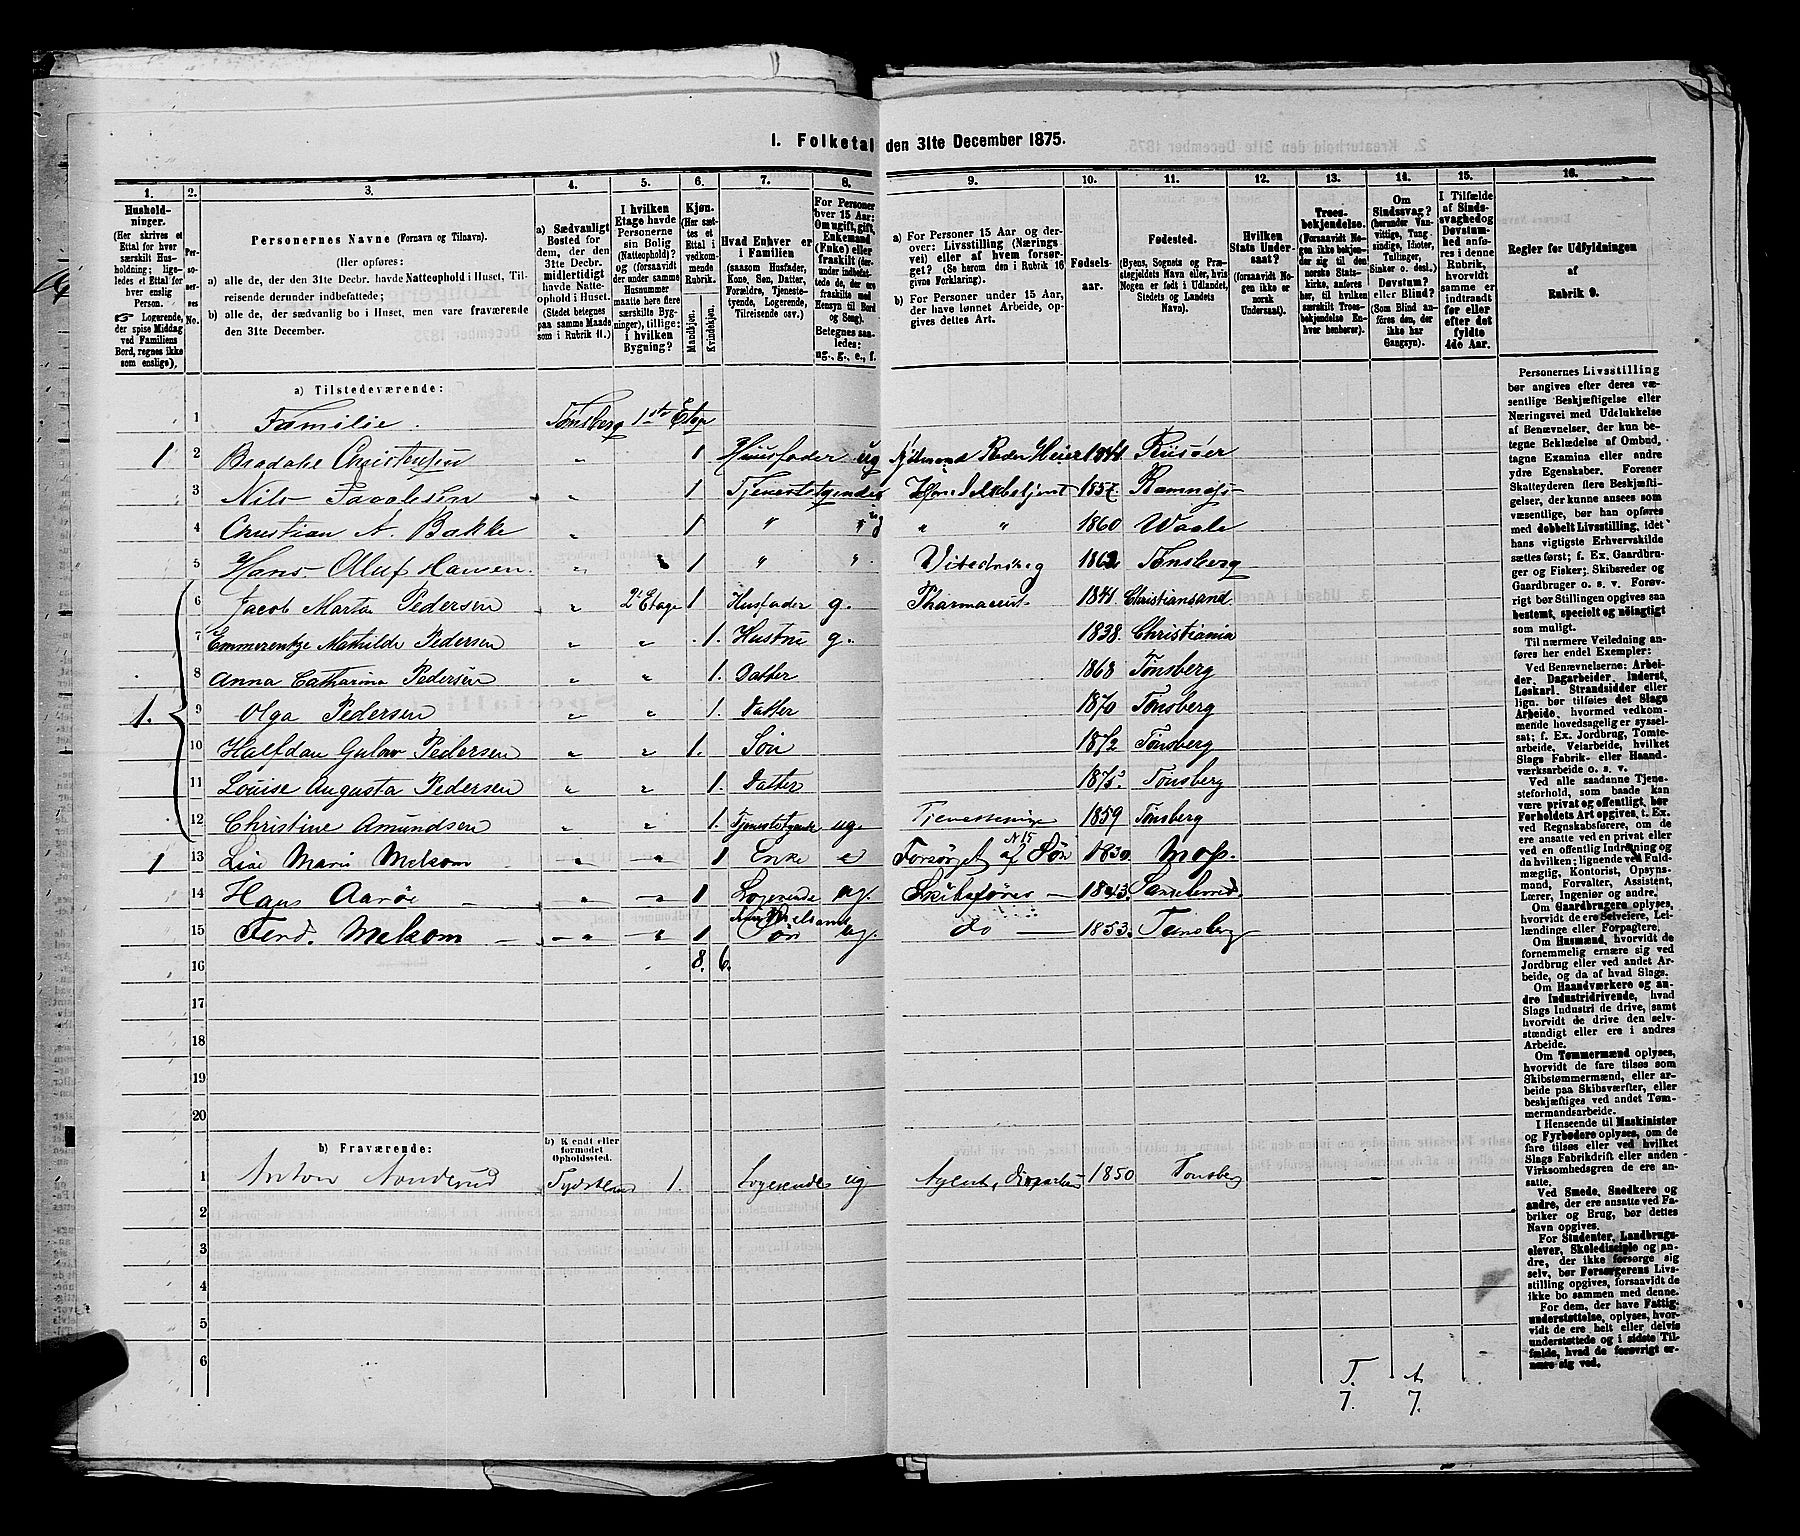 1. Folketal den 31te December 1875.
1. 2. 3. 4. 5. 6. 7. 8. 9. 10. 11. 12. 13. 14. 15. 16.
Husholdninger.
(Her skrives et
Ettal for hver
særskilt Husholdning;
ligeledes et Ettal
for hver
enslig
Person.
Logerende,
der spise Middag
ved Familiens
Bord, regnes ikke
som enslige).
Personernes No.
Personernes Navne (Fornavn og Tilnavn).
(Her opføres:
a) alle de, der den 31te Decbr. havde Natteophold i Huset, Tilreisende
derunder indbefattede;
b) alle de, der sædvanlig bo i Huset, men vare fraværende
den 31te December.
a) Sædvanligt
Bosted for
dem, der den
31te Decbr.
midlertidigt
havde Natteophold
i Huset.
(Stedet betegnes
paa samme Maade
som i Rubrik 11.)
I hvilken
Etage havde
Personerne
sin Bolig
(Natteophold)?
og (forsaavidt
der under samme
Husnummer
maatte høre flere
særskilte Bygninger),
tillige:
i hvilken
Bygning?
Kjøn.
(Her sættes
et
Ettal i
vedkommende
Rubrik.
Mandkjøn.
Kvindekjøn.
Hvad Enhver er
i Familien
(saasom Husfader,
Kone, Søn, Datter,
Forældre, Tjenestetyende,
Logerende,
Tilreisende osv.)
For Personer
over 15 Aar:
Om ugift, gift,
Enkemand
(Enke) eller
fraskilt
Betegnes saaledes:
ug., g., e., f.
a) For Personer 15 Aar og derover:
Livsstilling (Næringsvei)
eller af hvem forsørget?
(Se herom den i Rubrik 16
givne Forklaring).
b) For Personer under 15 Aar,
der have lønnet Arbeide, opgives
dettes Art.
Fødselsaar.
Fødested.
(Byens, Sognets og Præstegjeldets
Navn eller, hvis
Nogen er født i Udlandet,
Stedets og Landets
Navn).
Hvilken
Stats Undersaat?
(forsaavidt Nogen
ikke er
norsk
Undersaat).
Troesbekjendelse.
(Forsaavidt Nogen
ikke bekjender
sig til den
norske Statskirke,
anføres
her, til hvilken
særskilt Troesbekjendelse
Enhver
henhører).
Om
Sindssvag?
(herunder Vanvittige,
Tungsindige,
Idioter,
Tullinger,
Sinker o. desl.)
Døvstum?
eller Blind?
(Som Blind anføres
den, der
ikke har
Gangsyn).
I Tilfælde
af Sindssvaghed
og
Døvstumhed
anføres
i denne
Rubrik,
hvorvidt
samme er
indtraadt
før eller
efter det
fyldte
4de Aar.
Regler for Udfyldningen
af
Rubrik 9.
a) Tilstedeværende:
1 Familie. Tønsberg 1ste Etage
1 2 " 1 Huusfader ug Riisøer
3 Nils " 1 Tjenestetyende 1857 Ramnæs
4 Christian A. Bakke " 1 " " " 1860 Waale
5 Hans Oluf Hansen " " 1 " " 1862 Tønsberg
6 Jacob Martin Pedersen " 2. Etage 1 Husfader g. Pharmaceut 1841 Christiansand
7 Emmerentze Mathilde Pedersen " " 1. Hustru g. 1838. Christiania
8 Anna Catharina Pedersen " " 1. Datter 1868 Tønsberg
1. 9 Olga Pedersen " " 1. Datter 1870 Tønsberg
10 Halfdan Gustav Pedersen " " 1. Søn 1872 Tønsberg
11 Louise Augusta Pedersen " " 1. Datter 1875 Tønsberg
12 Christine Amundsen " " 1. Tjenestetyende ug. 1859 Tønsberg
1 13 Lise Marie Melsom " " 1 Enke e Forsørget af Søn N 15 Moss.
14 Hans Aarøe " " 1 Logerende ug. Skibsfører 1843.
15 Ferd. Melsom " " 1 Søn ug. do 1853. Tønsberg
16 8. 6.
17
18
19
20
b) Fraværende:
b) Kjendt eller
formodet
Opholdssted.
1 Anton Tydskland 1. Logerende ug Agent, 1850 Tønsberg
2
3
4
5
6
T. A.
7. 7.
Personernes Livsstilling
bør angives efter deres væsentlige
Beskjæftigelse eller
Næringsvei med Udelukkelse
af Benævnelser, der kun betegne
Beklædelse af Ombud,
tagne Examina eller andre
ydre Egenskaber. Forener
Skatteyderen flere Beskjæftigelser,
der kunne ansees som
væsentlige, bør han opføres
med dobbelt Livsstilling, idet
hans vigtigste Erhvervskilde
sættes først; f. Ex. Gaardbruger
og Fisker; Skibsreder og
Gaardbruger o. s. v. Forøvrigt
bør Stillingen opgives saa
bestemt, specielt og nøiagtigt
som muligt.
Til nærmere Veiledning anføres
her endel Exempler:
Ved Benævnelserne: Arbeider,
Dagarbeider, Inderst,
Løskarl, Strandsidder eller
lign. bør tilføies det Slags
Arbeide, hvormed vedkommende
hovedsagelig er sysselsat;
f. Ex. Jordbrug, Tomtearbeide,
Veiarbeide, hvilket
Slags Fabrik- eller Haandværksarbeide
o. s. v.
Ved alle saadanne Tjenesteforhold,
som baade kan
være privat og offentligt, bør
Forholdets Art opgives, t. Ex.
ved Regnskabsførere, om de
ere ansatte ved en privat eller
ved en offentlig Indretning og
da hvilken; lignende ved Fuldmægtig,
Kontorist, Opsynsmand,
Forvalter, Assistent,
Lærer, Ingeniør og andre.
Om Gaardbrugere oplyses,
hvorvidt de ere Selveiere, Leilændinge
eller Forpagtere.
Om Husmænd, hvorvidt de
fornemmelig ernære sig ved
Jordbrug eller ved andet Arbeide,
og da af hvad Slags.
Om Haandværkere og andre
Industridrivende, hvad
Slags Industri de drive, samt
hvorvidt de drive den selvstændigt
eller ere i andres
Arbeide.
Om Tømmermænd oplyses,
hvorvidt de fare tilsøs som
Skibstømmermænd, eller arbeide
paa Skibsværfter, eller
beskjæftiges ved andet Tømmermandsarbeide.
I Henseende til Maskinister
og Fyrbødere oplyses, om de
fare tilsøs eller ved hvilket
Slags Fabrikdrift eller anden
Virksomhedsgren de ere ansatte.
Ved Smede, Snedkere og
andre, der ere ansatte ved Fabriker
og Brug, bør dettes
Navn opgives.
For Studenter, Landbrugselever,
Skoledisciple og andre,
der ikke forsørge sig
selv, bør Forsørgerens Livsstilling
opgives, forsaavidt de
ikke bo sammen med denne.
For dem, der have Fattigunderstøttelse,
oplyses, hvorvidt
de ere helt eller delvis
understøttede og i sidste Tilfælde,
hvad de forøvrigt ernære
sig ved.